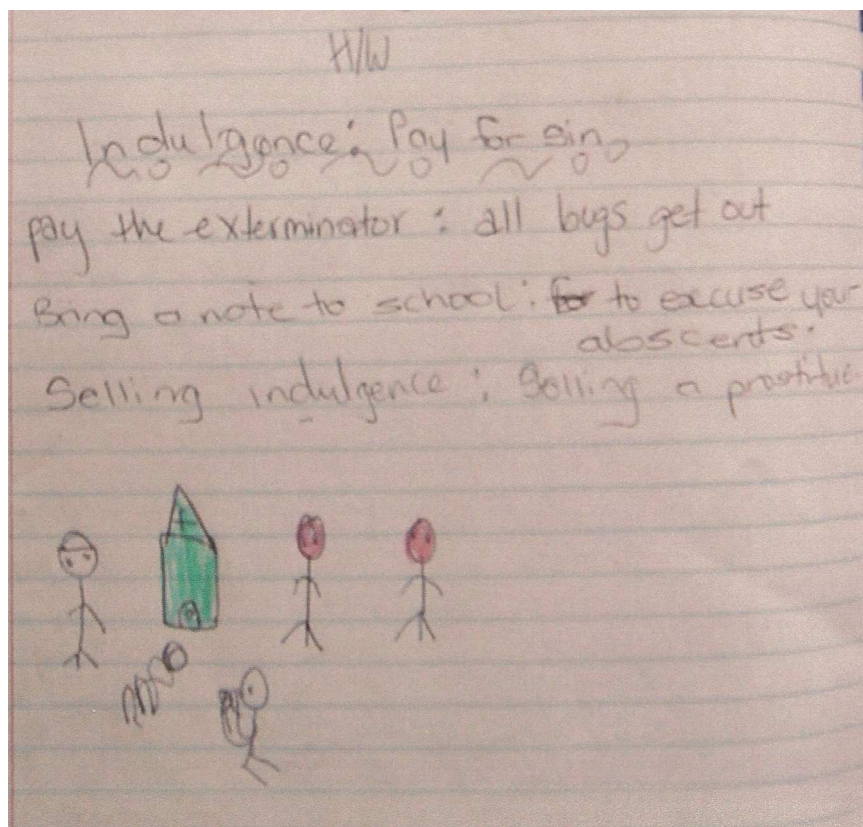 H/W
Indulgence: Pay for sin
pay the exterminator: all bugs get out
Bring a note to school: for to excuse your
abscents.
Selling indulgence: Selling a prostitute